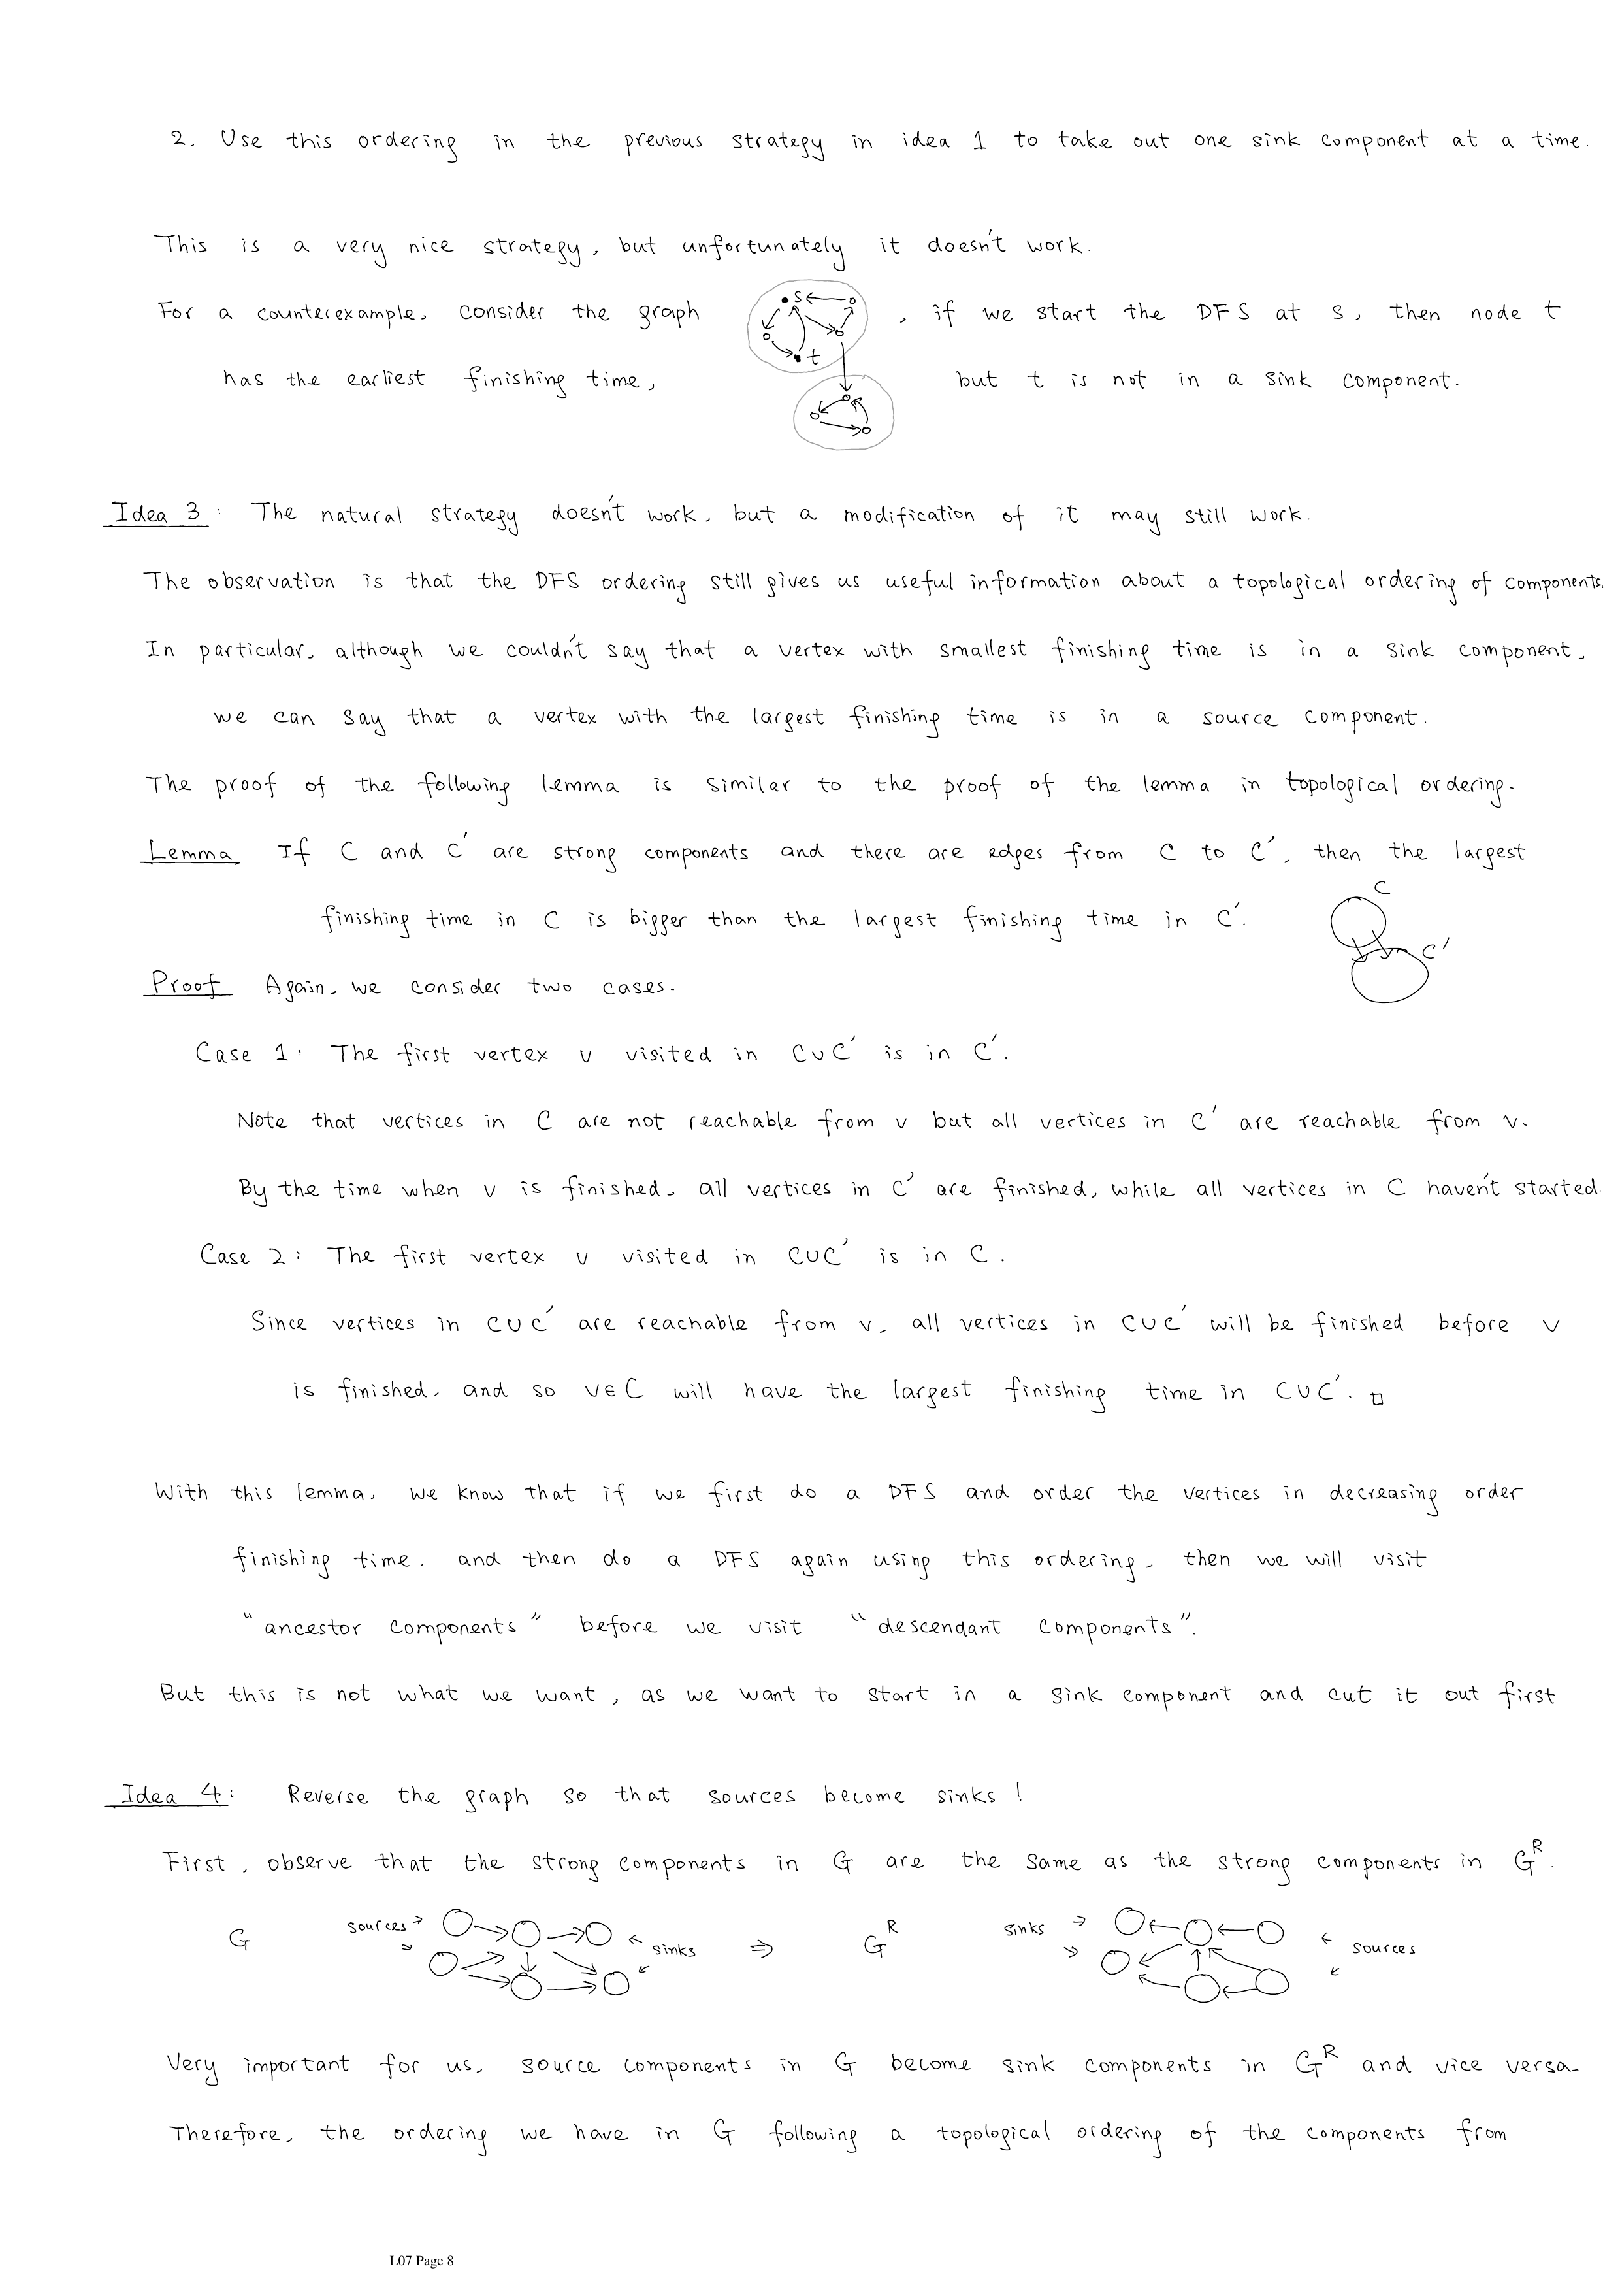 2. Use this ordering in the previous strategy in idea 1 to take out one sink component at a time.
This is a very nice strategy, but unfortunately it doesn't work.
For a counterexample, consider the graph , if we start the DFS at s, then node t
s
t
has the earliest finishing time, but t is not in a sink component.
Idea 3: The natural strategy doesn't work, but a modification of it may still work.
The observation is that the DFS ordering still gives us useful information about a topological ordering of components.
In particular, although we couldn't say that a vertex with smallest finishing time is in a sink component,
we can say that a vertex with the largest finishing time is in a source component.
The proof of the following lemma is similar to the proof of the lemma in topological ordering.
Lemma If C and C' are strong components and there are edges from C to C', then the largest
finishing time in C is bigger than the largest finishing time in C'.
C
C'
Proof Again, we consider two cases.
Case 1: The first vertex v visited in C∪C' is in C'.
Note that vertices in C are not reachable from v but all vertices in C' are reachable from v.
By the time when v is finished, all vertices in C' are finished, while all vertices in C haven't started.
Case 2: The first vertex v visited in C∪C' is in C.
Since vertices in C∪C' are reachable from v, all vertices in C∪C' will be finished before v
is finished, and so v∈C will have the largest finishing time in C∪C'. □
With this lemma, we know that if we first do a DFS and order the vertices in decreasing order
finishing time, and then do a DFS again using this ordering, then we will visit
"ancestor components" before we visit "descendant components".
But this is not what we want, as we want to start in a sink component and cut it out first.
Idea 4: Reverse the graph so that sources become sinks!
First, observe that the strong components in G are the same as the strong components in G^R.
G sources → ← sinks ⇒ G^R sinks → ← sources
Very important for us, source components in G become sink components in G^R and vice versa.
Therefore, the ordering we have in G following a topological ordering of the components from
L07 Page 8